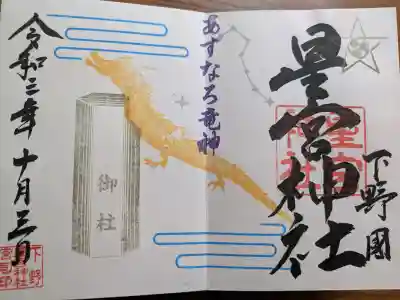 下野國
星宮神社
星宮
神社
あすなろ竜神
御柱
令和三年十月三日
下野
神社
宮司印